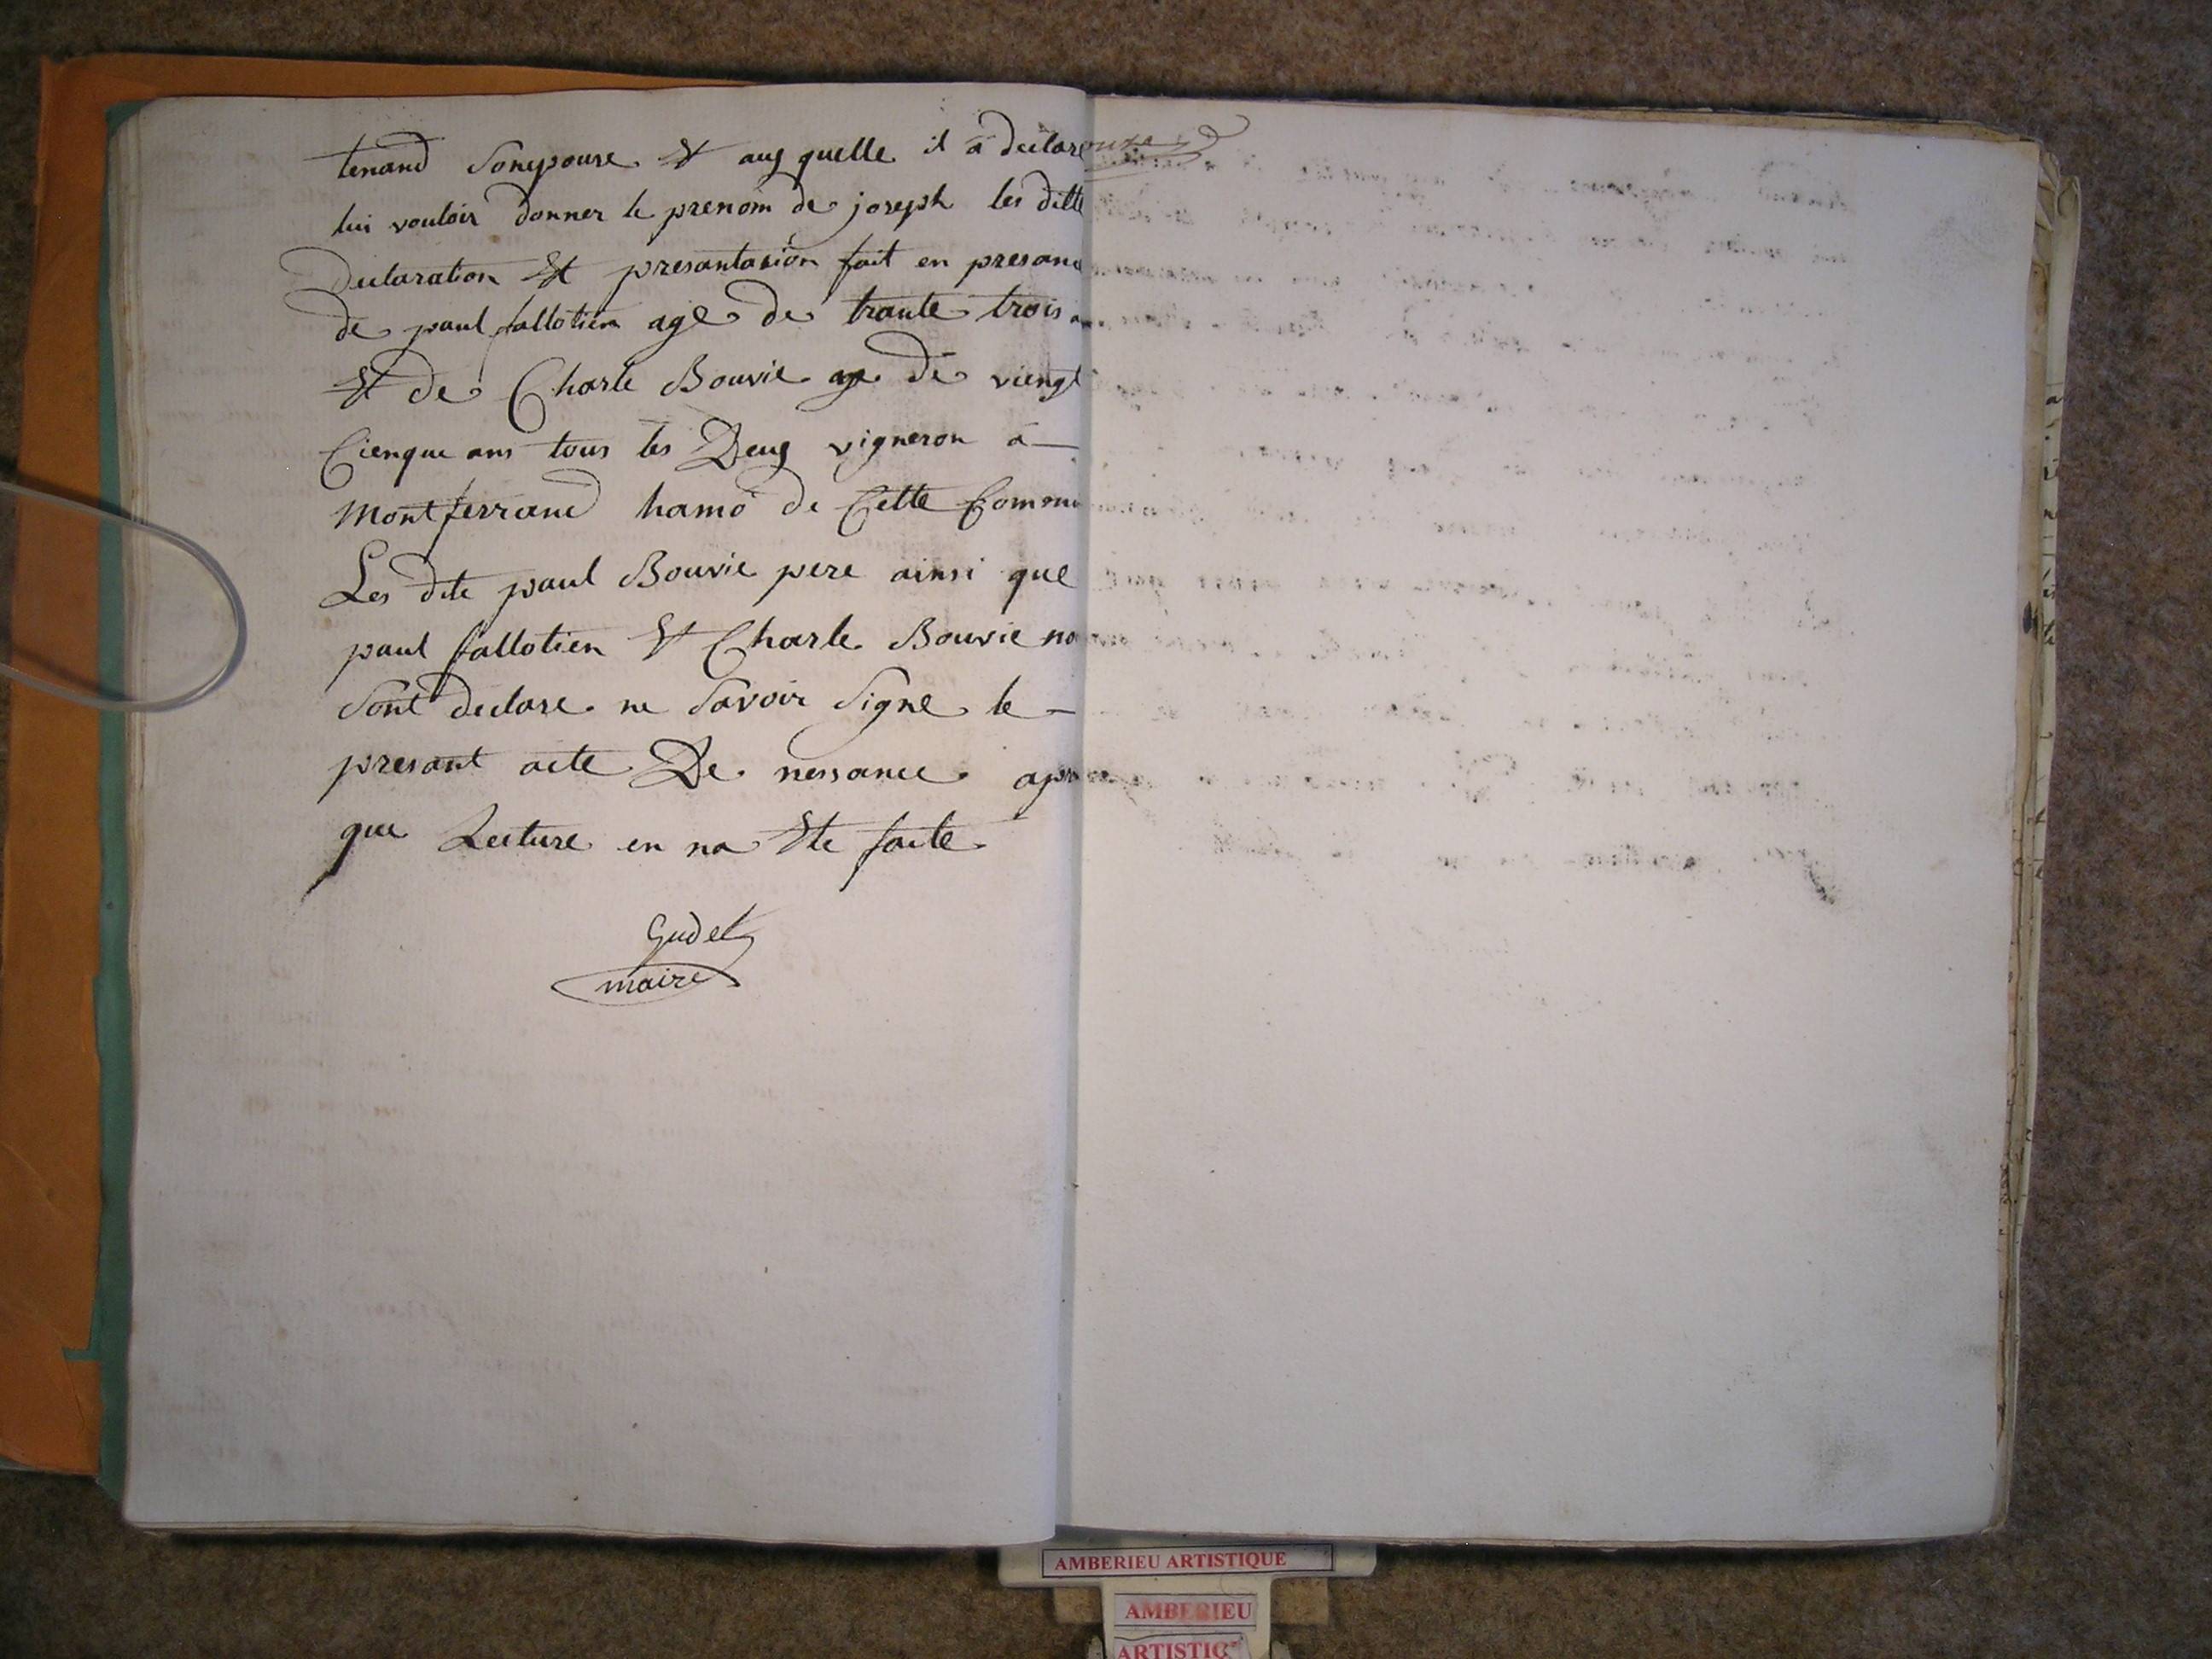 tenand Sonepouse Et auquelle il à declare
lui vouloir donner le prenom de joseph les ditte
declaration Et presantasion fait en presanc
de paul fallotien age de trante trois an
Et de Charle Bouvie age de viengt
Cienque ans tous les Deux vigneron à
Montferrand hamo de Cette Commu
Les dite paul Bouvie pere ainsi que
paul fallotien Et Charle Bouvie no
Sont declare ne Savoir Signe le
presant acte De nessance apr
que Lecture en na Ete faite
Gudet
maire
AMBERIEU ARTISTIQUE
AMBERIEU
ARTISTIQ